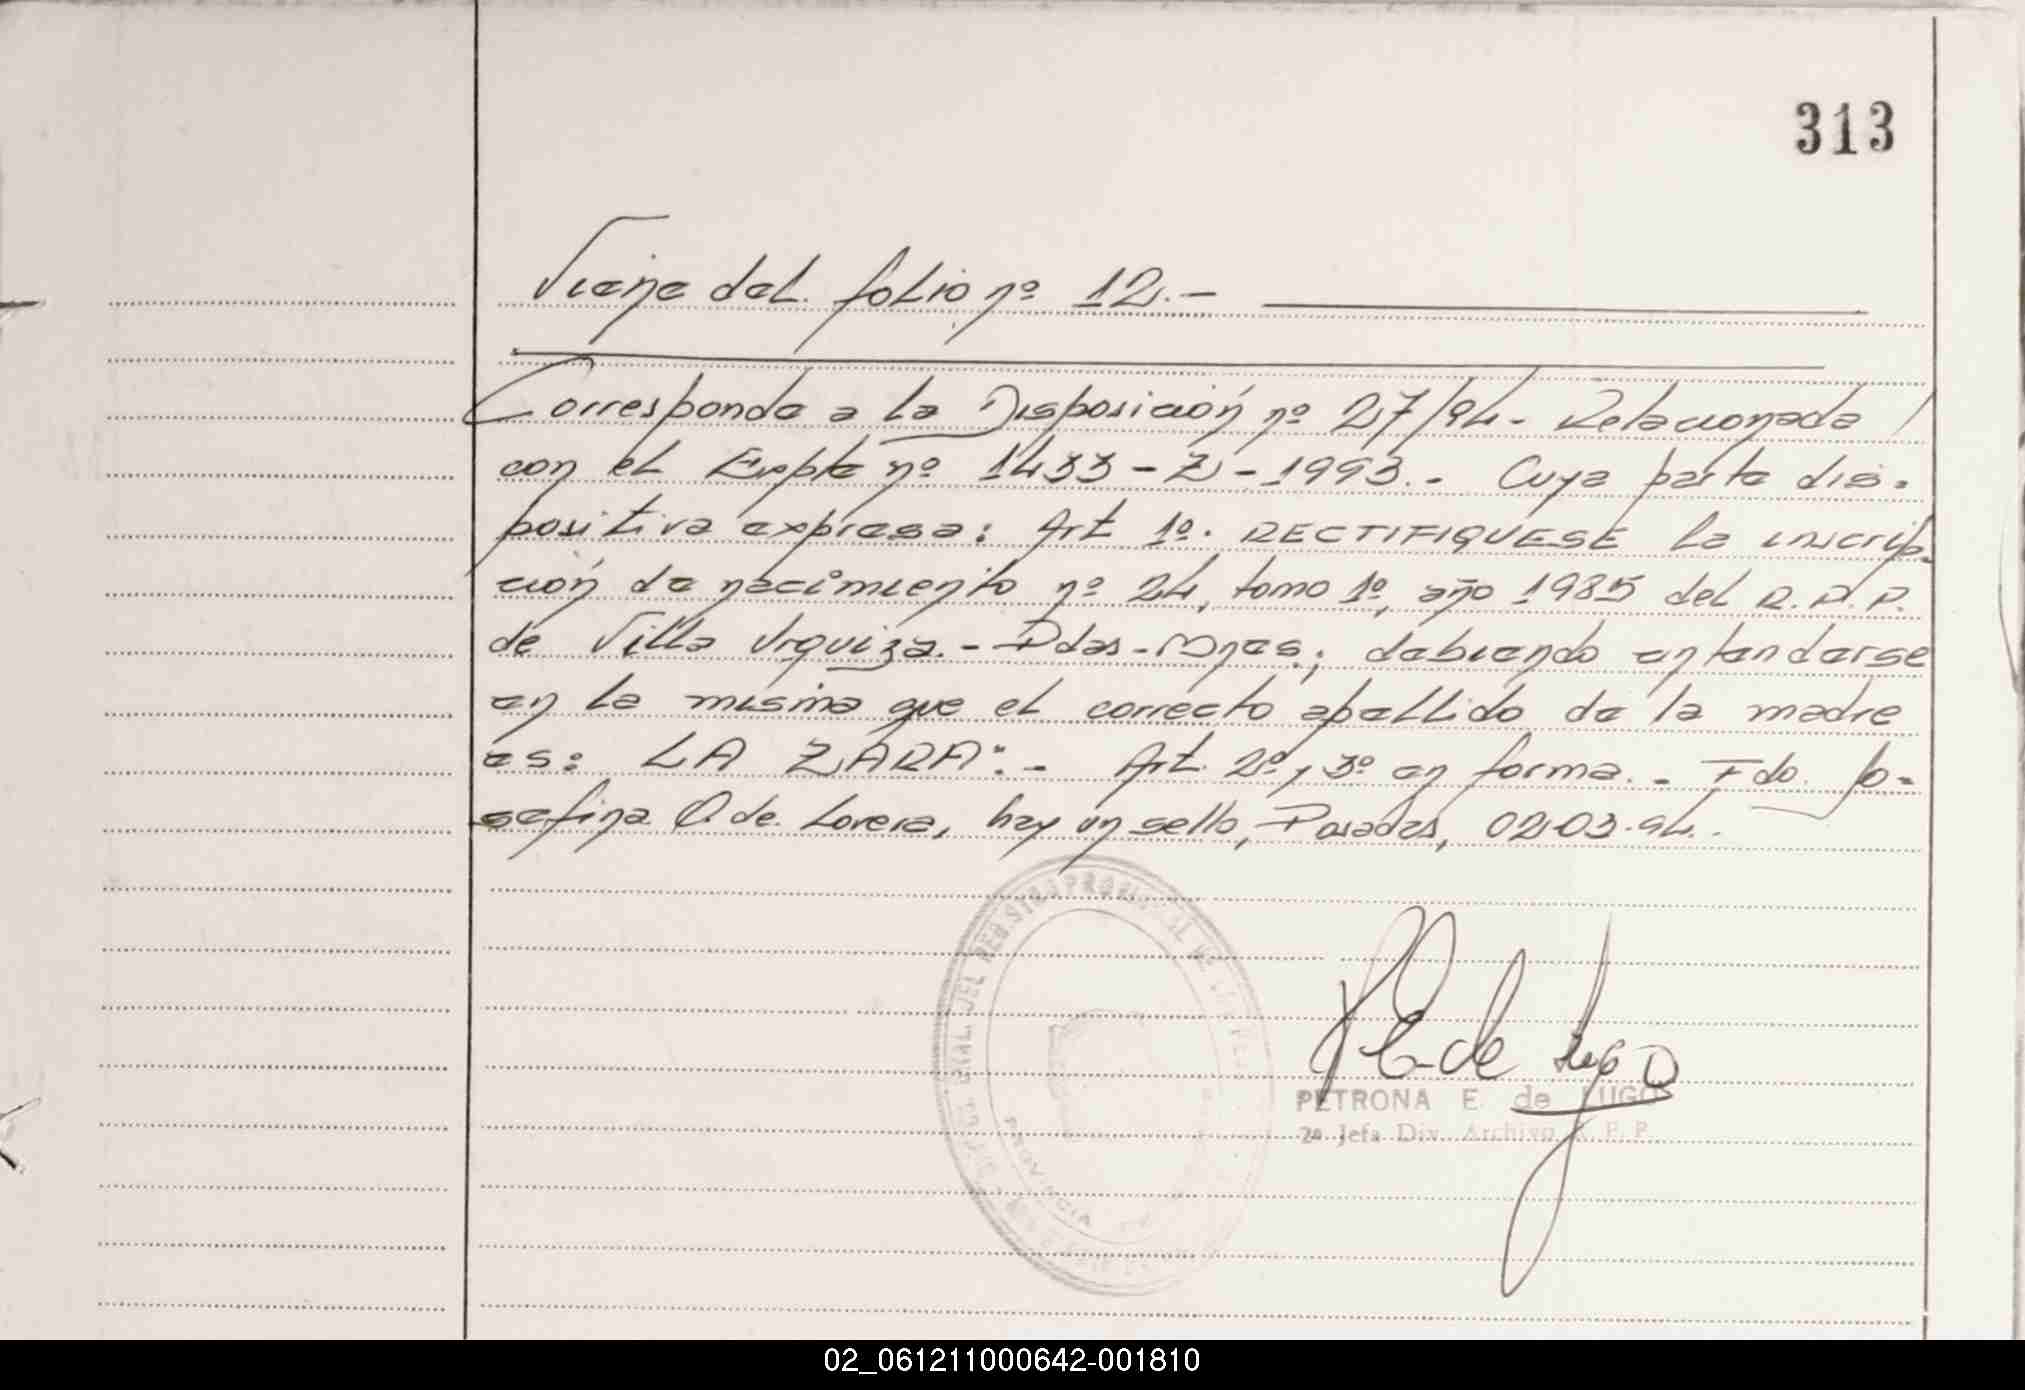 313
Viene del folio nº 12.-
Corresponde a la Disposición nº 27/94- Relacionada
con el Expte nº 1433-Z-1993.- Cuya parte dis-
positiva expresa: Art 1º. RECTIFIQUESE la inscrip-
ción de nacimiento nº 24, tomo 1º, año 1985 del R.P.P.
de Villa Urquiza.- Pdas-Mnes; debiendo entenderse
en la misma que el correcto apellido de la madre
es: LA ZARA".- Art. 2º y 3º en forma.- Fdo. Jo-
sefina O de Lovera, hay un sello, Posadas, 02-03-94.-
DEL REGISTRO PROVINCIAL
PROVINCIA
P E de Lugo
PETRONA E de LUGO
2ª Jefa Div. Archivo R. P. P.
02_061211000642-001810